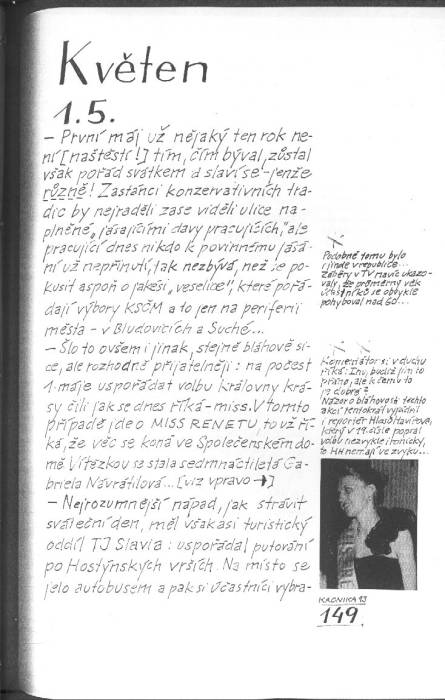 Květen
1.5.
— První máj už nějaký ten rok ne-
ní [naštěstí!] tím, čím býval, zůstal
však pořád svátkem a slaví se - jenže
různě! Zastánci konzervativních tra-
dic by nejraději zase viděli ulice na-
plněné „jásajícími davy pracujících", ale
pracující dnes nikdo k povinnému jásá-
ní už nepřinutí, tak nezbývá, než se po-
kusit aspoň o jakési „veselice", které pořá-
dají výbory KSČM a to jen na periferii
města - v Bludovicích a Suché...
— Šlo to ovšem i jinak, stejně bláhově si-
ce, ale rozhodně přijatelněji: na počest
1. máje uspořádat volbu královny krá-
sy čili jak se dnes říká - miss. V tomto
případě jde o MISS RENETU, to už ří-
ká, že věc se koná ve Společenském do-
mě. Vítězkou se stala sedmnáctiletá Ga-
briela Navrátilová... [viz vpravo →]
— Nejrozumnější nápad, jak strávit
sváteční den, měl však asi turistický
oddíl TJ Slavia: uspořádal putování
po Hostýnských vrších. Na místo se
jelo autobusem a pak si účastníci vybra-
Podobné tomu bylo
i jinde v republice...
Záběry v TV navíc ukazo-
valy, že průměrný věk
účastníků se obvykle
pohyboval nad 60...
Komentátor si v duchu
říká: Inu, budiž jim to
přáno, ale k čemu to
je dobré?
Názor o bláhovosti těchto
akcí tentokrát vyjádřil
i reportér Hlasů Havířova,
který v 19. čísle popsal
volbu nezvykle ironicky,
to HH nemají ve zvyku...
KRONIKA 13
149.